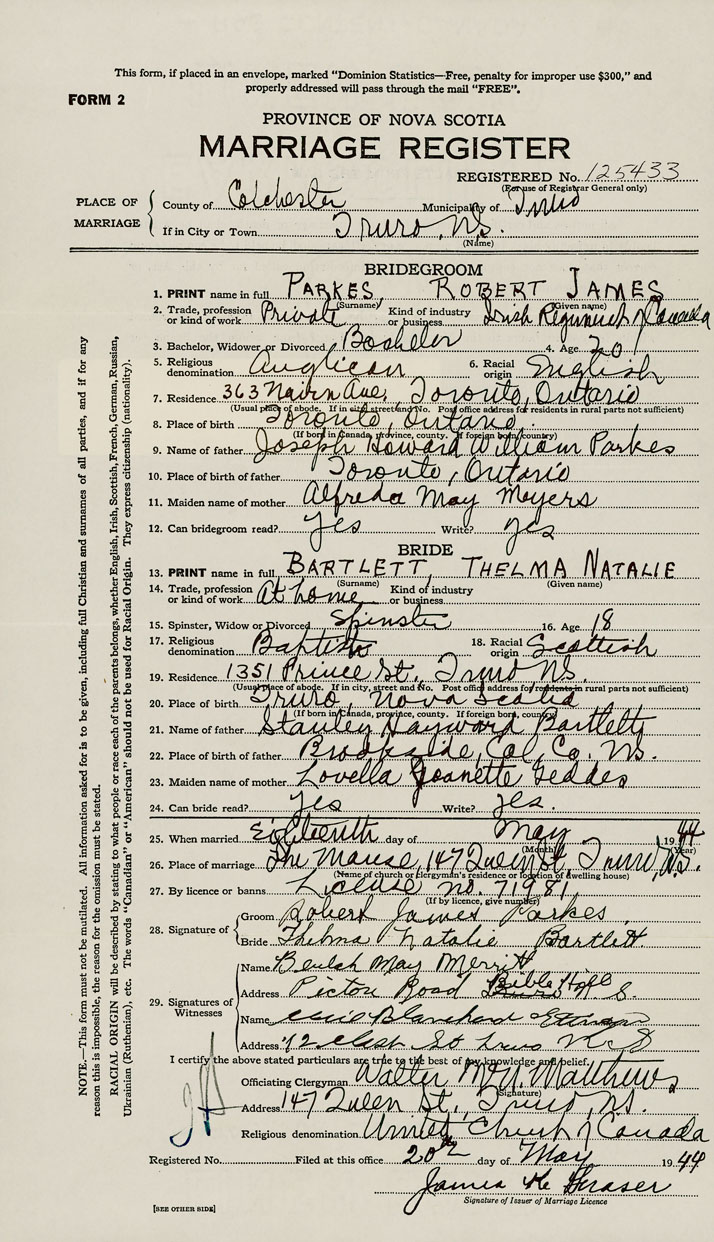 This form, if placed in an envelope, marked “Dominion Statistics—Free, penalty for improper use $300,” and
properly addressed will pass through the mail “FREE”.
FORM 2
PROVINCE OF NOVA SCOTIA
MARRIAGE REGISTER
REGISTERED No. 125433
(For use of Registrar General only)
PLACE OF MARRIAGE
County of Colchester Municipality of Truro
If in City or Town Truro, N.S.
(Name)
BRIDEGROOM
1. PRINT name in full PARKES ROBERT JAMES
(Surname) (Given name)
2. Trade, profession or kind of work Private Kind of industry or business Irish Regiment of Canada
3. Bachelor, Widower or Divorced Bachelor 4. Age 20
5. Religious denomination Anglican 6. Racial origin English
7. Residence 363 Nairn Ave, Toronto, Ontario
(Usual place of abode. If in city street and No. Post office address for residents in rural parts not sufficient)
8. Place of birth Toronto, Ontario.
(If born in Canada, province, county. If foreign born, country)
9. Name of father Joseph Howard William Parkes
10. Place of birth of father Toronto, Ontario
11. Maiden name of mother Alfreda May Meyers
12. Can bridegroom read? yes Write? yes
BRIDE
13. PRINT name in full BARTLETT, THELMA NATALIE
(Surname) (Given name)
14. Trade, profession or kind of work At home Kind of industry or business
15. Spinster, Widow or Divorced Spinster 16. Age 18
17. Religious denomination Baptist 18. Racial origin Scottish
19. Residence 1351 Prince St., Truro N.S.
(Usual Place of abode. If in city, street and No. Post office address for residents in rural parts not sufficient)
20. Place of birth Truro, Nova Scotia
(If born in Canada, province, county. If foreign born, country)
21. Name of father Stanley Hayward Bartlett
22. Place of birth of father Brookside, Col. Co. N.S.
23. Maiden name of mother Lovella Jeanette Geddes
24. Can bride read? yes Write? yes.
25. When married Eighteenth day of May 1944
(Month) (Year)
26. Place of marriage The Manse, 147 Queen St., Truro, N.S.
(Name of church or clergyman's residence or location of dwelling house)
27. By licence or banns License no. 71981,
(If by licence, give number)
28. Signature of
Groom Robert James Parkes
Bride Thelma Natalie Bartlett
29. Signatures of Witnesses
Name Beulah May Merritt
Address Pictou Road Bible Hill N. S.
Name Blanchard
Address 72 St Truro N S
I certify the above stated particulars are true to the best of my knowledge and belief.
Officiating Clergyman Walter McN. Matthews
(Signature)
Address 147 Queen St., Truro, N.S.
Religious denomination United Church of Canada
Registered No. Filed at this office 20th day of May 1944
James Fraser
Signature of Issuer of Marriage Licence
[SEE OTHER SIDE]
NOTE.—This form must not be mutilated. All information asked for is to be given, including full Christian and surnames of all parties, and if for any
reason this is impossible, the reason for the omission must be stated.
RACIAL ORIGIN will be described by stating to what people or race each of the parents belongs, whether English, Irish, Scottish, French, German, Russian,
Ukrainian (Ruthenian), etc. The words “Canadian” or “American” should not be used for Racial Origin. They express citizenship (nationality).